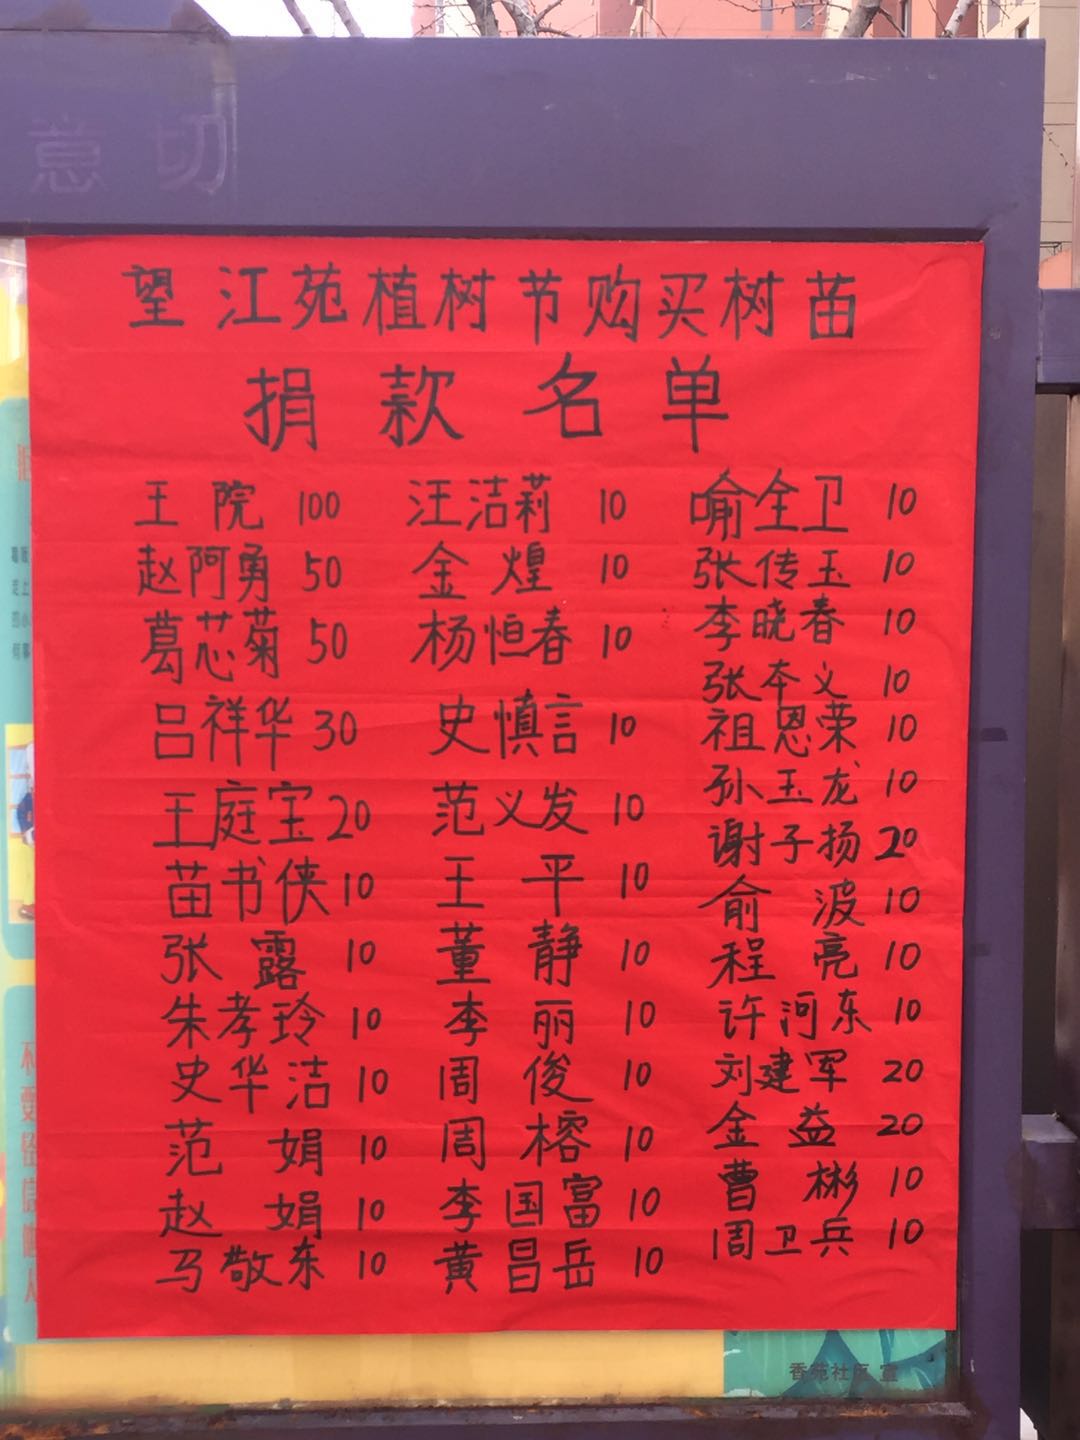 意 切
望江苑植树节购买树苗
捐款名单
王院 100 汪洁莉 10 喻全卫 10
赵阿勇 50 金煌 10 张传玉 10
葛芯菊 50 杨恒春 10 李晓春 10
张本义 10
吕祥华 30 史慎言 10 祖恩荣 10
孙玉龙 10
王庭宝 20 范义发 10 谢子扬 20
苗书侠 10 王平 10 俞波 10
张露 10 董静 10 程亮 10
朱孝玲 10 李丽 10 许河东 10
史华洁 10 周俊 10 刘建军 20
范娟 10 周榕 10 金益 20
赵娟 10 李国富 10 曹彬 10
马敬东 10 黄昌岳 10 周卫兵 10
香苑社区 宣